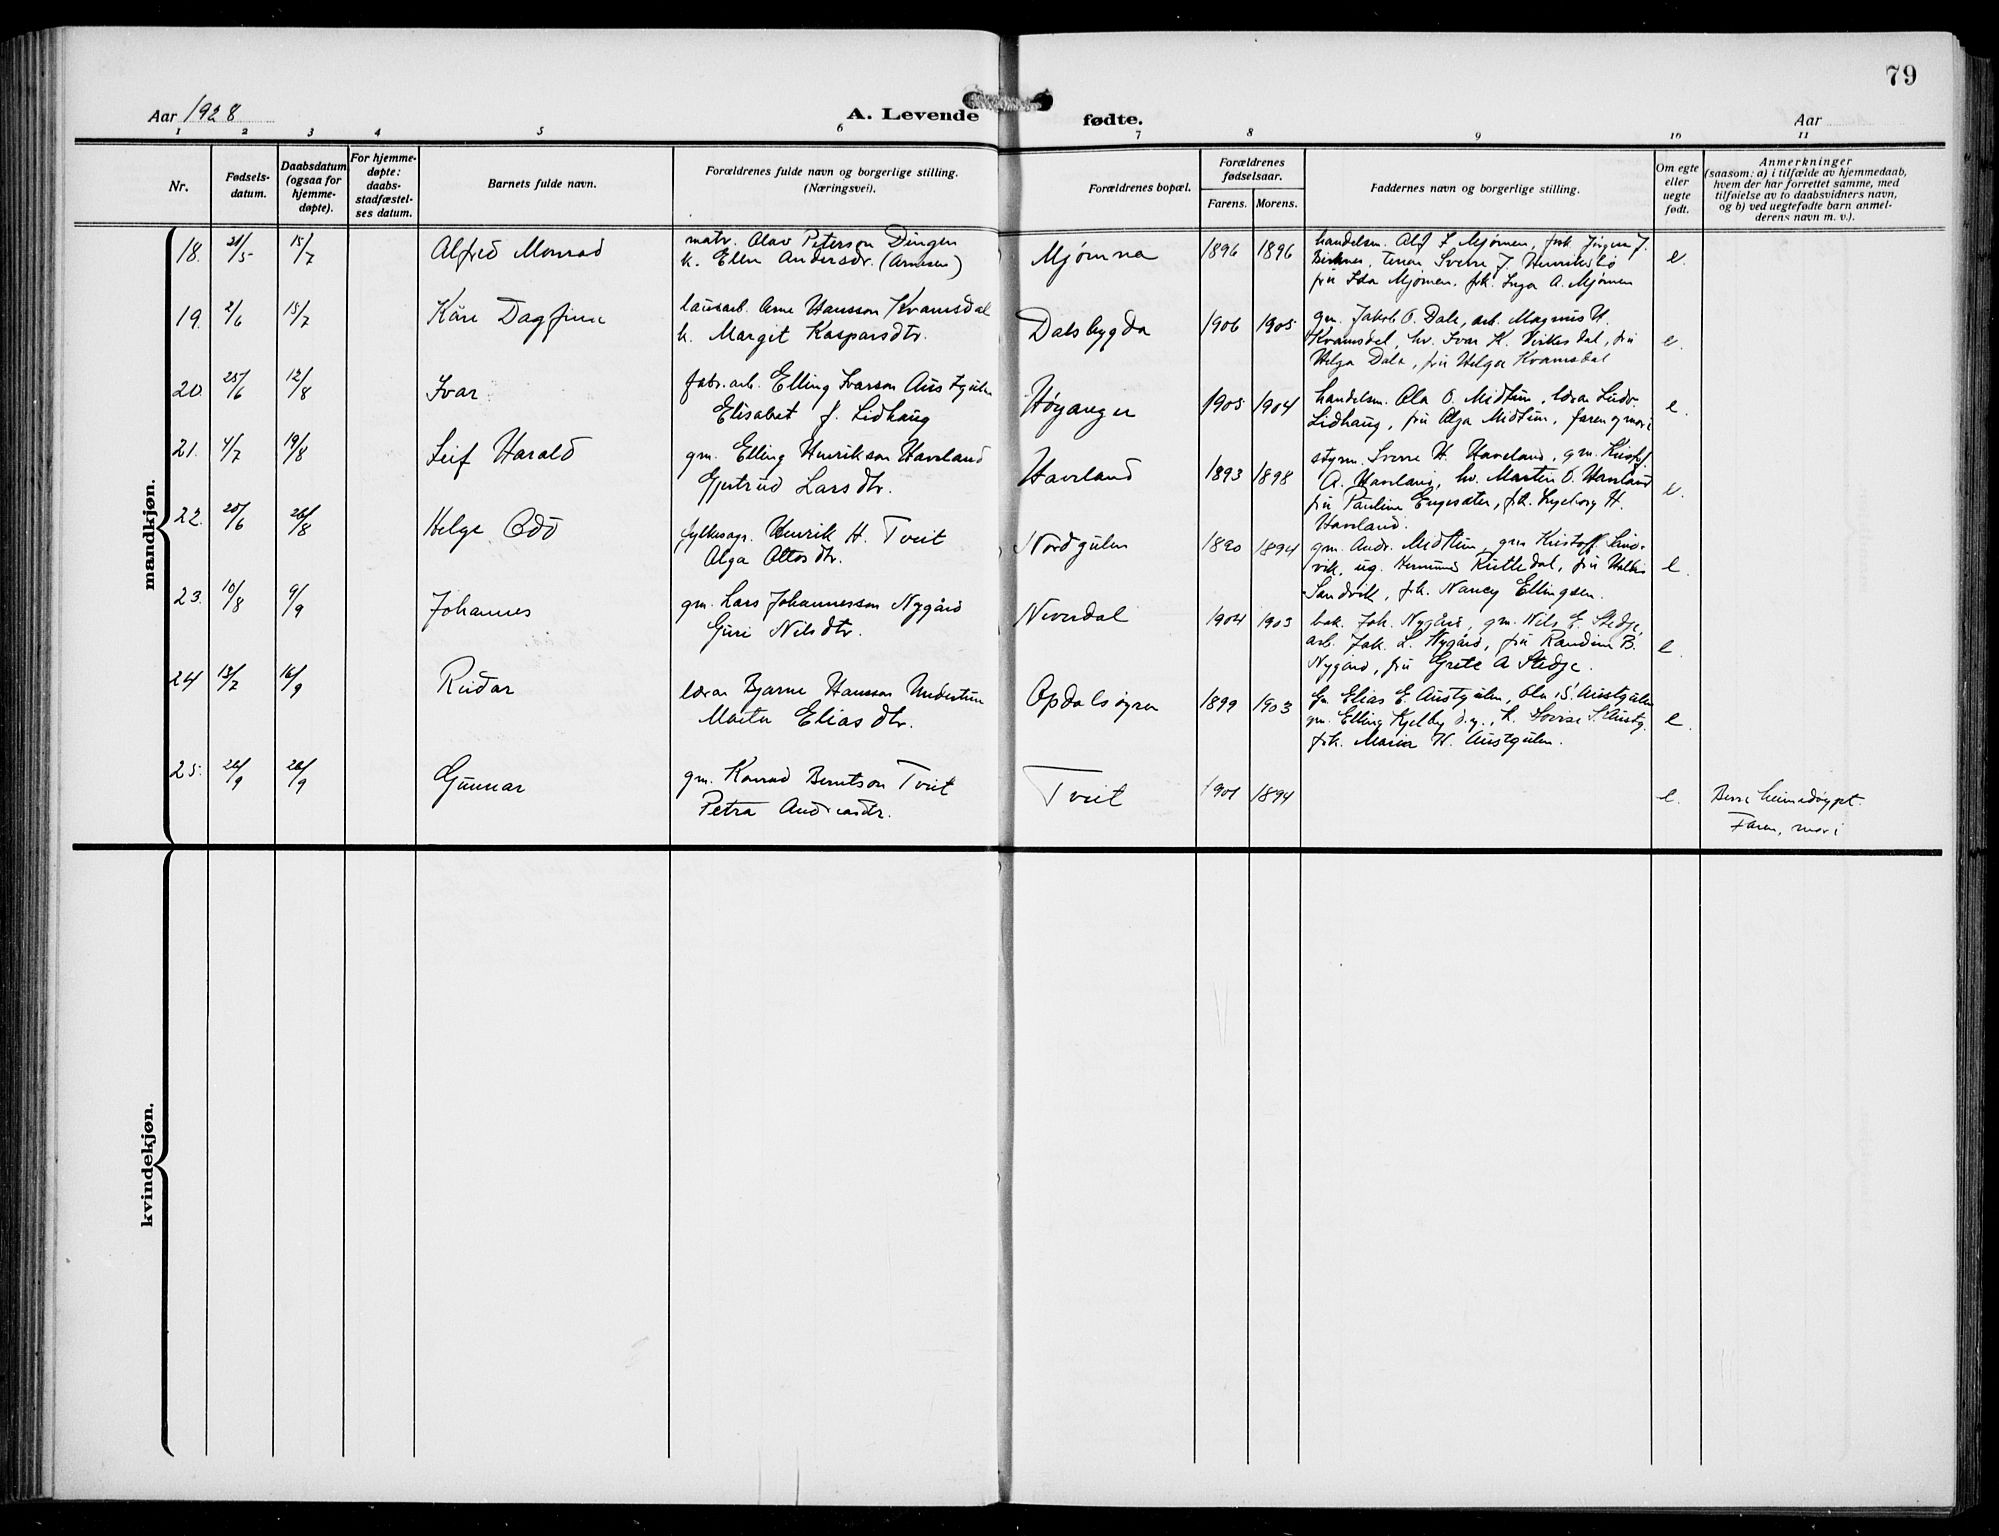 79
Aar 1928
A. Levende fødte.
Aar
1 2 3 4 5 6 7 8 9 10 11
Nr.
Fødsels-
datum.
Daabsdatum
(ogsaa for
hjemme-
døpte).
For hjemme-
døpte:
daabs-
stadfæstel-
ses datum.
Barnets fulde navn.
Forældrenes fulde navn og borgerlige stilling.
(Næringsvei).
Forældrenes bopæl.
Forældrenes
fødselsaar.
Farens. Morens.
Faddernes navn og borgerlige stilling.
Om egte
eller
uegte
født.
Anmerkninger
(saasom: a) i tilfælde av hjemmedaab,
hvem der har forrettet samme, med
tilføielse av to daabsvidners navn,
og b) ved uegtefødte barn anmel-
derens navn m. v.).
mandkjøn.
18. 21/5 15/7 Alfred Monrad
matr. Olav Peterson Dingen
k. Ellen Andersdr. (Arnesen)
Mjømna 1896 1896
handelsm. Alf Mjømen, frk. Jørgen J.
Sverre J.
fru Ida Mjømen, frk. Inga A. Mjømen
e.
19. 2/6 15/7 Kåre Dagfinn
lausarb. Arne Hansson Kvamsdal
k. Margit Kasparsdtr.
Dalsbygda 1906 1905
gm. Jakob O. Dale, arb. Magnus H.
Kvamsdal, hv. Ivar K. Virkesdal, fru
Helga Dale, fru Helga Kvamsdal
e.
20. 25/6 12/8 Ivar
fabr. arb. Elling Ivarson Austgulen
Elisabet f. Lidhaug
Høyanger 1905 1904
handelsm. Ola O. Midtun, lærar Ludv.
Lidhaug, fru Olga Midtun, faren og mori
e.
21. 4/7 19/8 Leif Harald
gm. Elling Henrikson Haveland
Gjertrud Larsdtr.
Haveland 1893 1898
styrm. Sverre H. Haveland, gm. Kristof
A. Haveland, hv. Martin O. Haveland
fru Pauline Engesæter, frk. Ingeborg H.
Haveland.
e.
22. 20/6 26/8 Helge Odd
fylkesagr. Henrik H. Tveit
Olga Ottosdtr.
Nordgulen 1890 1894
gm. Andr. Midtun, gm Kristoff Sand-
vik, ug. Hermund Rutledal, fru
Sandvik, frk. Nancy Ellingsen.
e.
23. 10/8 9/9 Johannes
gm. Lars Johannesson Nygård
Guri Nilsdtr.
Neverdal 1904 1903
bak. Joh. Nygård, gm. Nils E. Stedje,
arb. Joh. L. Nygård, fru Randine B.
Nygård, fru Grete A Stedje.
e.
24 13/7 16/9 Reidar
lærar Bjarne Hansson Undertun
Marta Eliasdtr.
Opdalsøyra 1899 1903
gm Elias E. Austgulen, Ola S. Austgulen
gm. Elling Kjelby d.y., k. Lovise S. Austg.
frk. Maria H. Austgulen.
e.
25. 26/9 26/9 Gunnar
gm. Konrad Berntson Tveit
Petra Andreasdtr.
Tveit 1901 1894
e.
Berre heimedøypt.
Faren, mori
kvindekjøn.